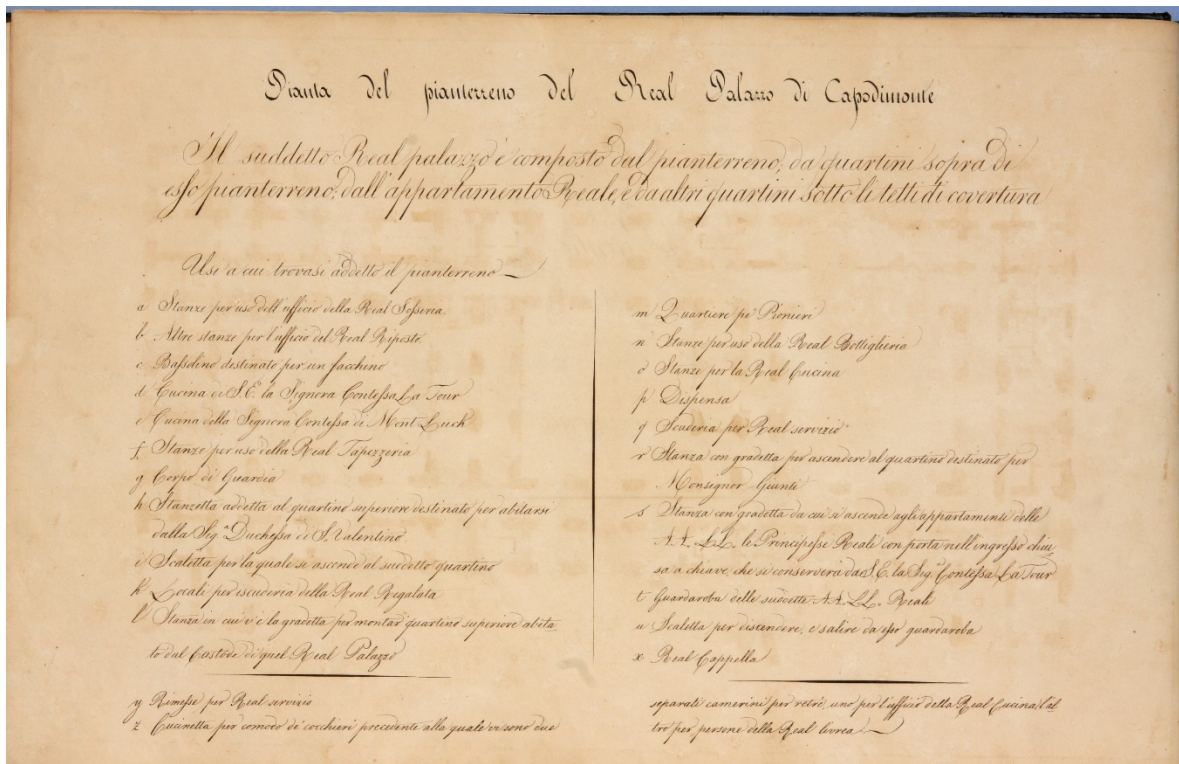 Pianta del pianterreno del Real Palazzo di Capodimonte
Il suddetto Real palazzo è composto dal pianterreno, da quartini sopra di
esso pianterreno, dall'appartamento Reale, e da altri quartini sotto li tetti di covertura
Usi a cui trovasi addetto il pianterreno
a Stanze per uso dell'ufficio della Real
b Altre stanze per l'ufficio del Real Riposto
c Bassolino destinato per un facchino
d Cucina di S.E. la Signora Contessa La Tour
e Cucina della Signora Contessa di Mont Luck
f Stanze per uso della Real Tapezzeria
g Corpo di Guardia
h Stanzetta addetta al quartino superiore destinato per abitarsi
dalla Sig.a Duchessa di S. Valentino
i Scaletta per la quale si ascende al suddetto quartino
k Locali per escuderia della Real Regalata
l Stanza in cui v'è la gradetta per montar quartino superiore abita
to dal Custode di quel Real Palazzo
m Quartiere pe' Pionieri
n Stanze per uso della Real Bottiglieria
o Stanze per la Real Cucina
p Dispensa
q Scuderia per Real servizio
r Stanza con gradetta per ascendere al quartino destinato per
Monsignor Giunti
s Stanza con gradetta da cui si ascende agli appartamenti delle
A.A. LL. le Principesse Reali con porta nell'ingresso chiu
sa a chiave, che si conserverà da S.E. la Sig.a Contessa La Tour
t Guardaroba delle suddette A.A. LL. Reali
u Scaletta per discendere, e salire da esse guardaroba
x Real Cappella
y Rimesse per Real servizio
z Cucinetta per comodo de' cocchieri precedente alla quale vi sono due
separati camerini per retrè, uno per l'ufficio della Real Cucina l'al
tro per persone della Real livrea